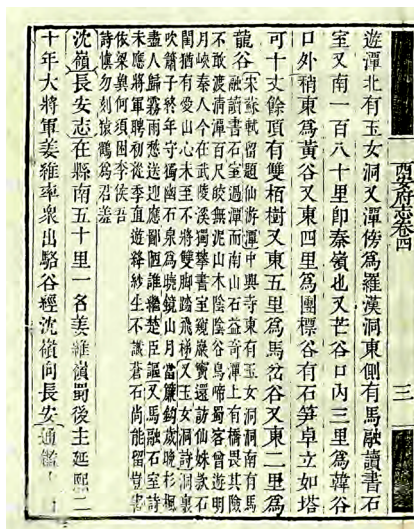 西安府志卷四
三
遊潭北有玉女洞又潭傍爲羅漢洞東側有馬融讀書石
室又南一百八十里卽秦嶺也又芒谷口內三里爲韓谷
口外稍東爲黃谷又東四里爲團標谷有石笋卓立如塔
可十丈餘頂有雙栢樹又東五里爲馬岔谷又東二里爲
龍谷
宋蘇軾留題仙游潭中興寺東有玉女洞洞南有馬
融讀書石室過潭而南山石益奇潭上有橋畏其險
不敢渡淸潭百尺皎無泥山木陰陰谷鳥啼蜀客曾遊明
月峽秦人今在武陵溪獨攀書室窺巖竇還訪仙姝款石
閨猶有愛山心未至不將雙脚踏飛梯又玉女洞詩洞裏
吹簫子終年守獨幽石泉爲曉鏡山月當簾鉤歲晚杉楓
盡人歸霧雨愁送迎應鄙陋誰繼楚臣謳又馬融石室詩
未應將軍聘初從季直遊絳紗生不識蒼石尚能留豈害
依梁冀何須困李侯吾
詩愼勿刻猿鶴爲君羞
沈嶺長安志在縣南五十里一名姜維嶺蜀後主延熙二
十年大將軍姜維率衆出駱谷經沈嶺向長安通鑑